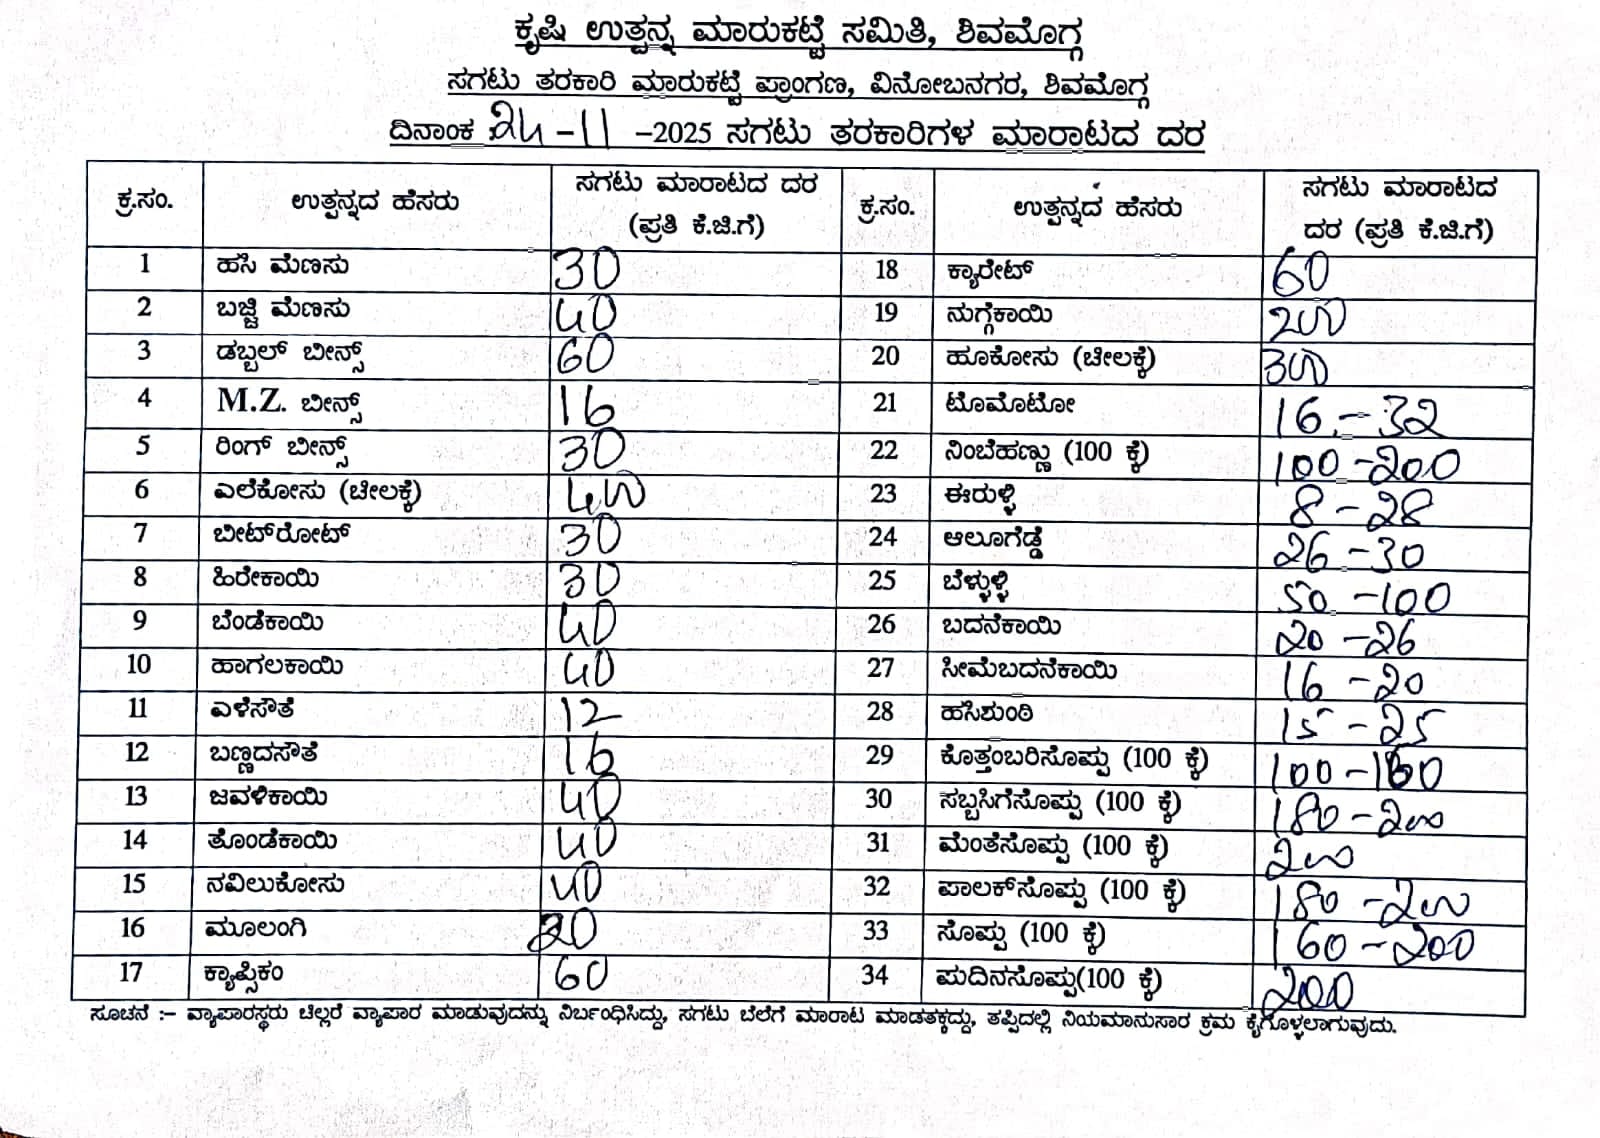 ಕೃಷಿ ಉತ್ಪನ್ನ ಮಾರುಕಟ್ಟೆ ಸಮಿತಿ, ಶಿವಮೊಗ್ಗ
ಸಗಟು ತರಕಾರಿ ಮಾರುಕಟ್ಟೆ ಪ್ರಾಂಗಣ, ವಿನೋಬನಗರ, ಶಿವಮೊಗ್ಗ
ದಿನಾಂಕ :24-11 -2025 ಸಗಟು ತರಕಾರಿಗಳ ಮಾರಾಟದ ದರ
ಕ್ರ.ಸಂ. ಉತ್ಪನ್ನದ ಹೆಸರು ಸಗಟು ಮಾರಾಟದ ದರ (ಪ್ರತಿ ಕೆ.ಜಿ.ಗೆ) ಕ್ರ.ಸಂ. ಉತ್ಪನ್ನದ ಹೆಸರು ಸಗಟು ಮಾರಾಟದ ದರ (ಪ್ರತಿ ಕೆ.ಜಿ.ಗೆ)
1 ಹಸಿ ಮೆಣಸು 30 18 ಕ್ಯಾರೇಟ್ 60
2 ಬಜ್ಜಿ ಮೆಣಸು 40 19 ನುಗ್ಗೆಕಾಯಿ 200
3 ಡಬ್ಬಲ್ ಬೀನ್ಸ್ 60 20 ಹೂಕೋಸು (ಚೀಲಕ್ಕೆ) 300
4 M.Z. ಬೀನ್ಸ್ 16 21 ಟೊಮೊಟೋ 16 - 32
5 ರಿಂಗ್ ಬೀನ್ಸ್ 30 22 ನಿಂಬೆಹಣ್ಣು (100 ಕ್ಕೆ) 100 -200
6 ಎಲೆಕೋಸು (ಚೀಲಕ್ಕೆ) 400 23 ಈರುಳ್ಳಿ 8 - 28
7 ಬೀಟ್‌ರೋಟ್ 30 24 ಆಲೂಗೆಡ್ಡೆ 26 -30
8 ಹಿರೇಕಾಯಿ 30 25 ಬೆಳ್ಳುಳ್ಳಿ 50 -100
9 ಬೆಂಡೆಕಾಯಿ 40 26 ಬದನೆಕಾಯಿ 20 -26
10 ಹಾಗಲಕಾಯಿ 40 27 ಸೀಮೆಬದನೆಕಾಯಿ 16 -20
11 ಎಳೆಸೌತೆ 12 28 ಹಸಿಶುಂಠಿ 15 - 25
12 ಬಣ್ಣದಸೌತೆ 16 29 ಕೊತ್ತಂಬರಿಸೊಪ್ಪು (100 ಕ್ಕೆ) 100 -160
13 ಜವಳಿಕಾಯಿ 40 30 ಸಬ್ಬಸಿಗೆಸೊಪ್ಪು (100 ಕ್ಕೆ) 180 -200
14 ತೊಂಡೆಕಾಯಿ 40 31 ಮೆಂತೆಸೊಪ್ಪು (100 ಕ್ಕೆ) 200
15 ನವಿಲುಕೋಸು 40 32 ಪಾಲಕ್‌ಸೊಪ್ಪು (100 ಕ್ಕೆ) 180 -200
16 ಮೂಲಂಗಿ 20 33 ಸೊಪ್ಪು (100 ಕ್ಕೆ) 160 -200
17 ಕ್ಯಾಪ್ಸಿಕಂ 60 34 ಪುದಿನಸೊಪ್ಪು(100 ಕ್ಕೆ) 200
ಸೂಚನೆ :– ವ್ಯಾಪಾರಸ್ಥರು ಚಿಲ್ಲರೆ ವ್ಯಾಪಾರ ಮಾಡುವುದನ್ನು ನಿರ್ಬಂಧಿಸಿದ್ದು, ಸಗಟು ಬೆಲೆಗೆ ಮಾರಾಟ ಮಾಡತಕ್ಕದ್ದು, ತಪ್ಪಿದಲ್ಲಿ ನಿಯಮಾನುಸಾರ ಕ್ರಮ ಕೈಗೊಳ್ಳಲಾಗುವುದು.